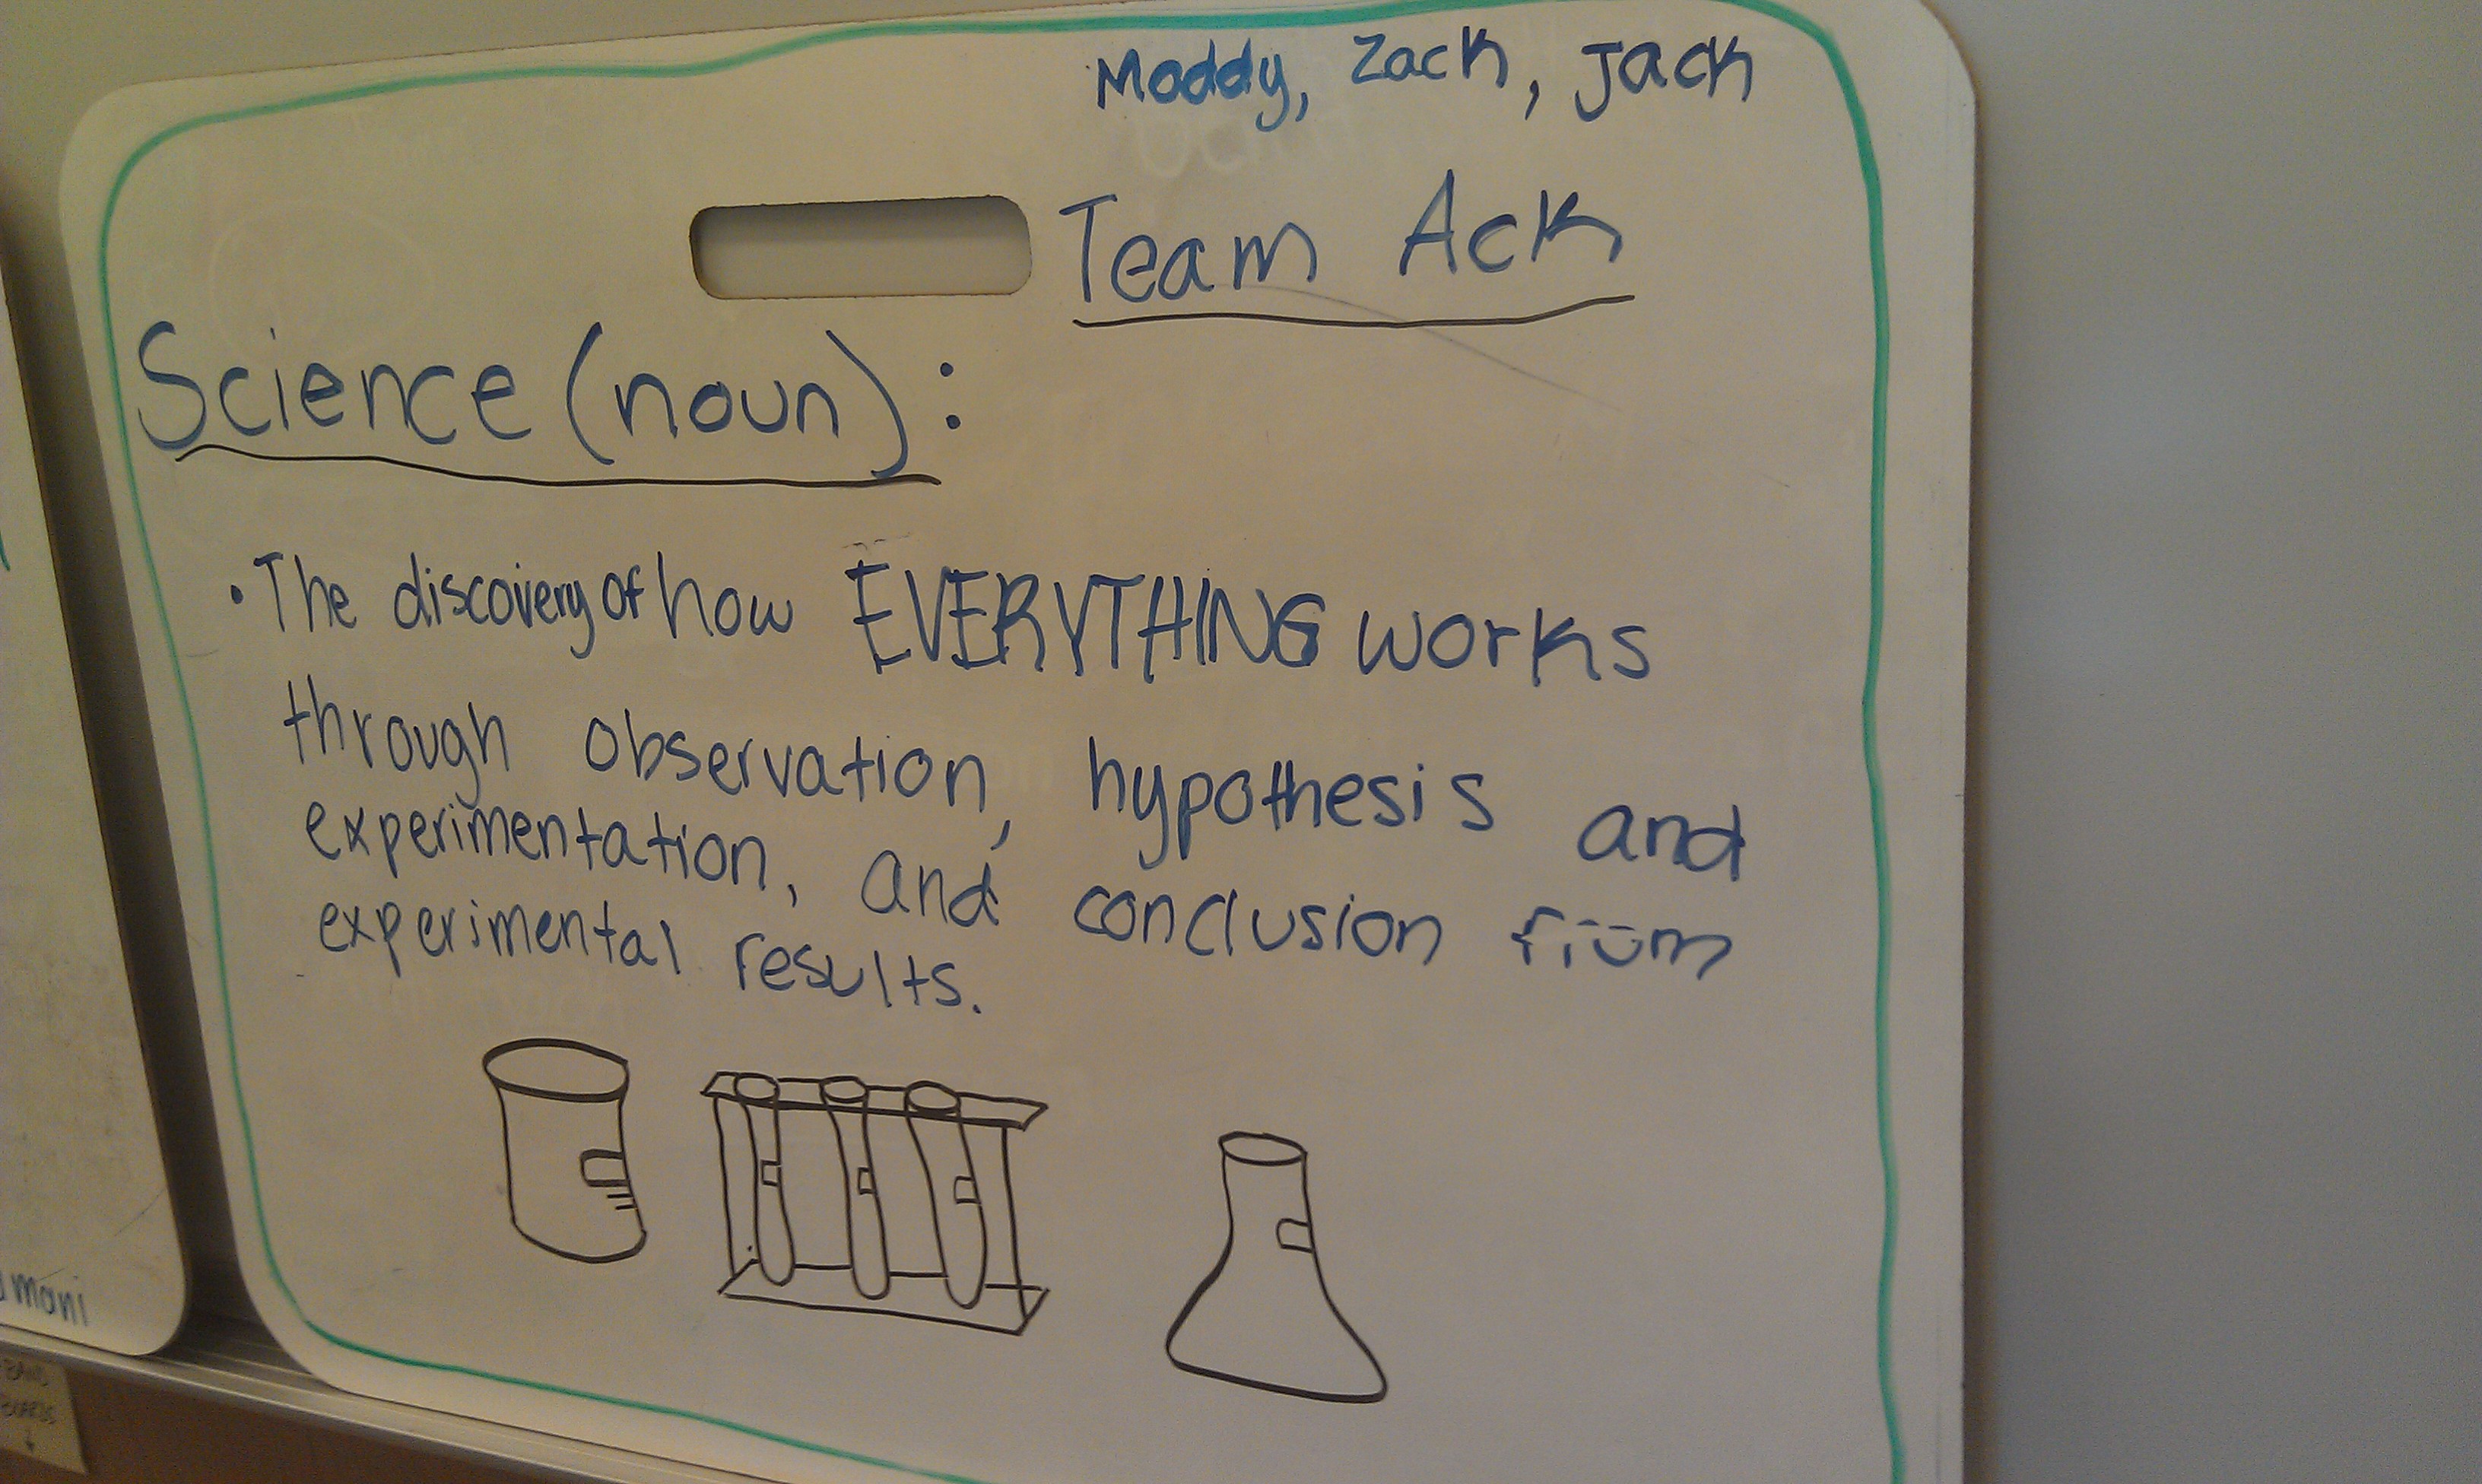 Maddy, Zack, Jack
Team Ack
Science (noun):
• The discovery of how EVERYTHING works
through observation, hypothesis and
experimentation, and conclusion from
experimental results.
mani